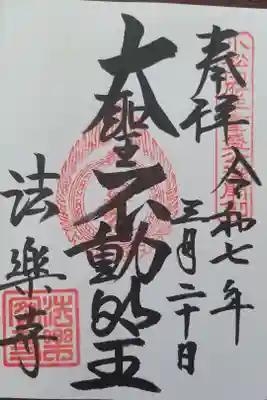 奉拝
令和七年
三月二十日
大聖不動明王
法樂寺